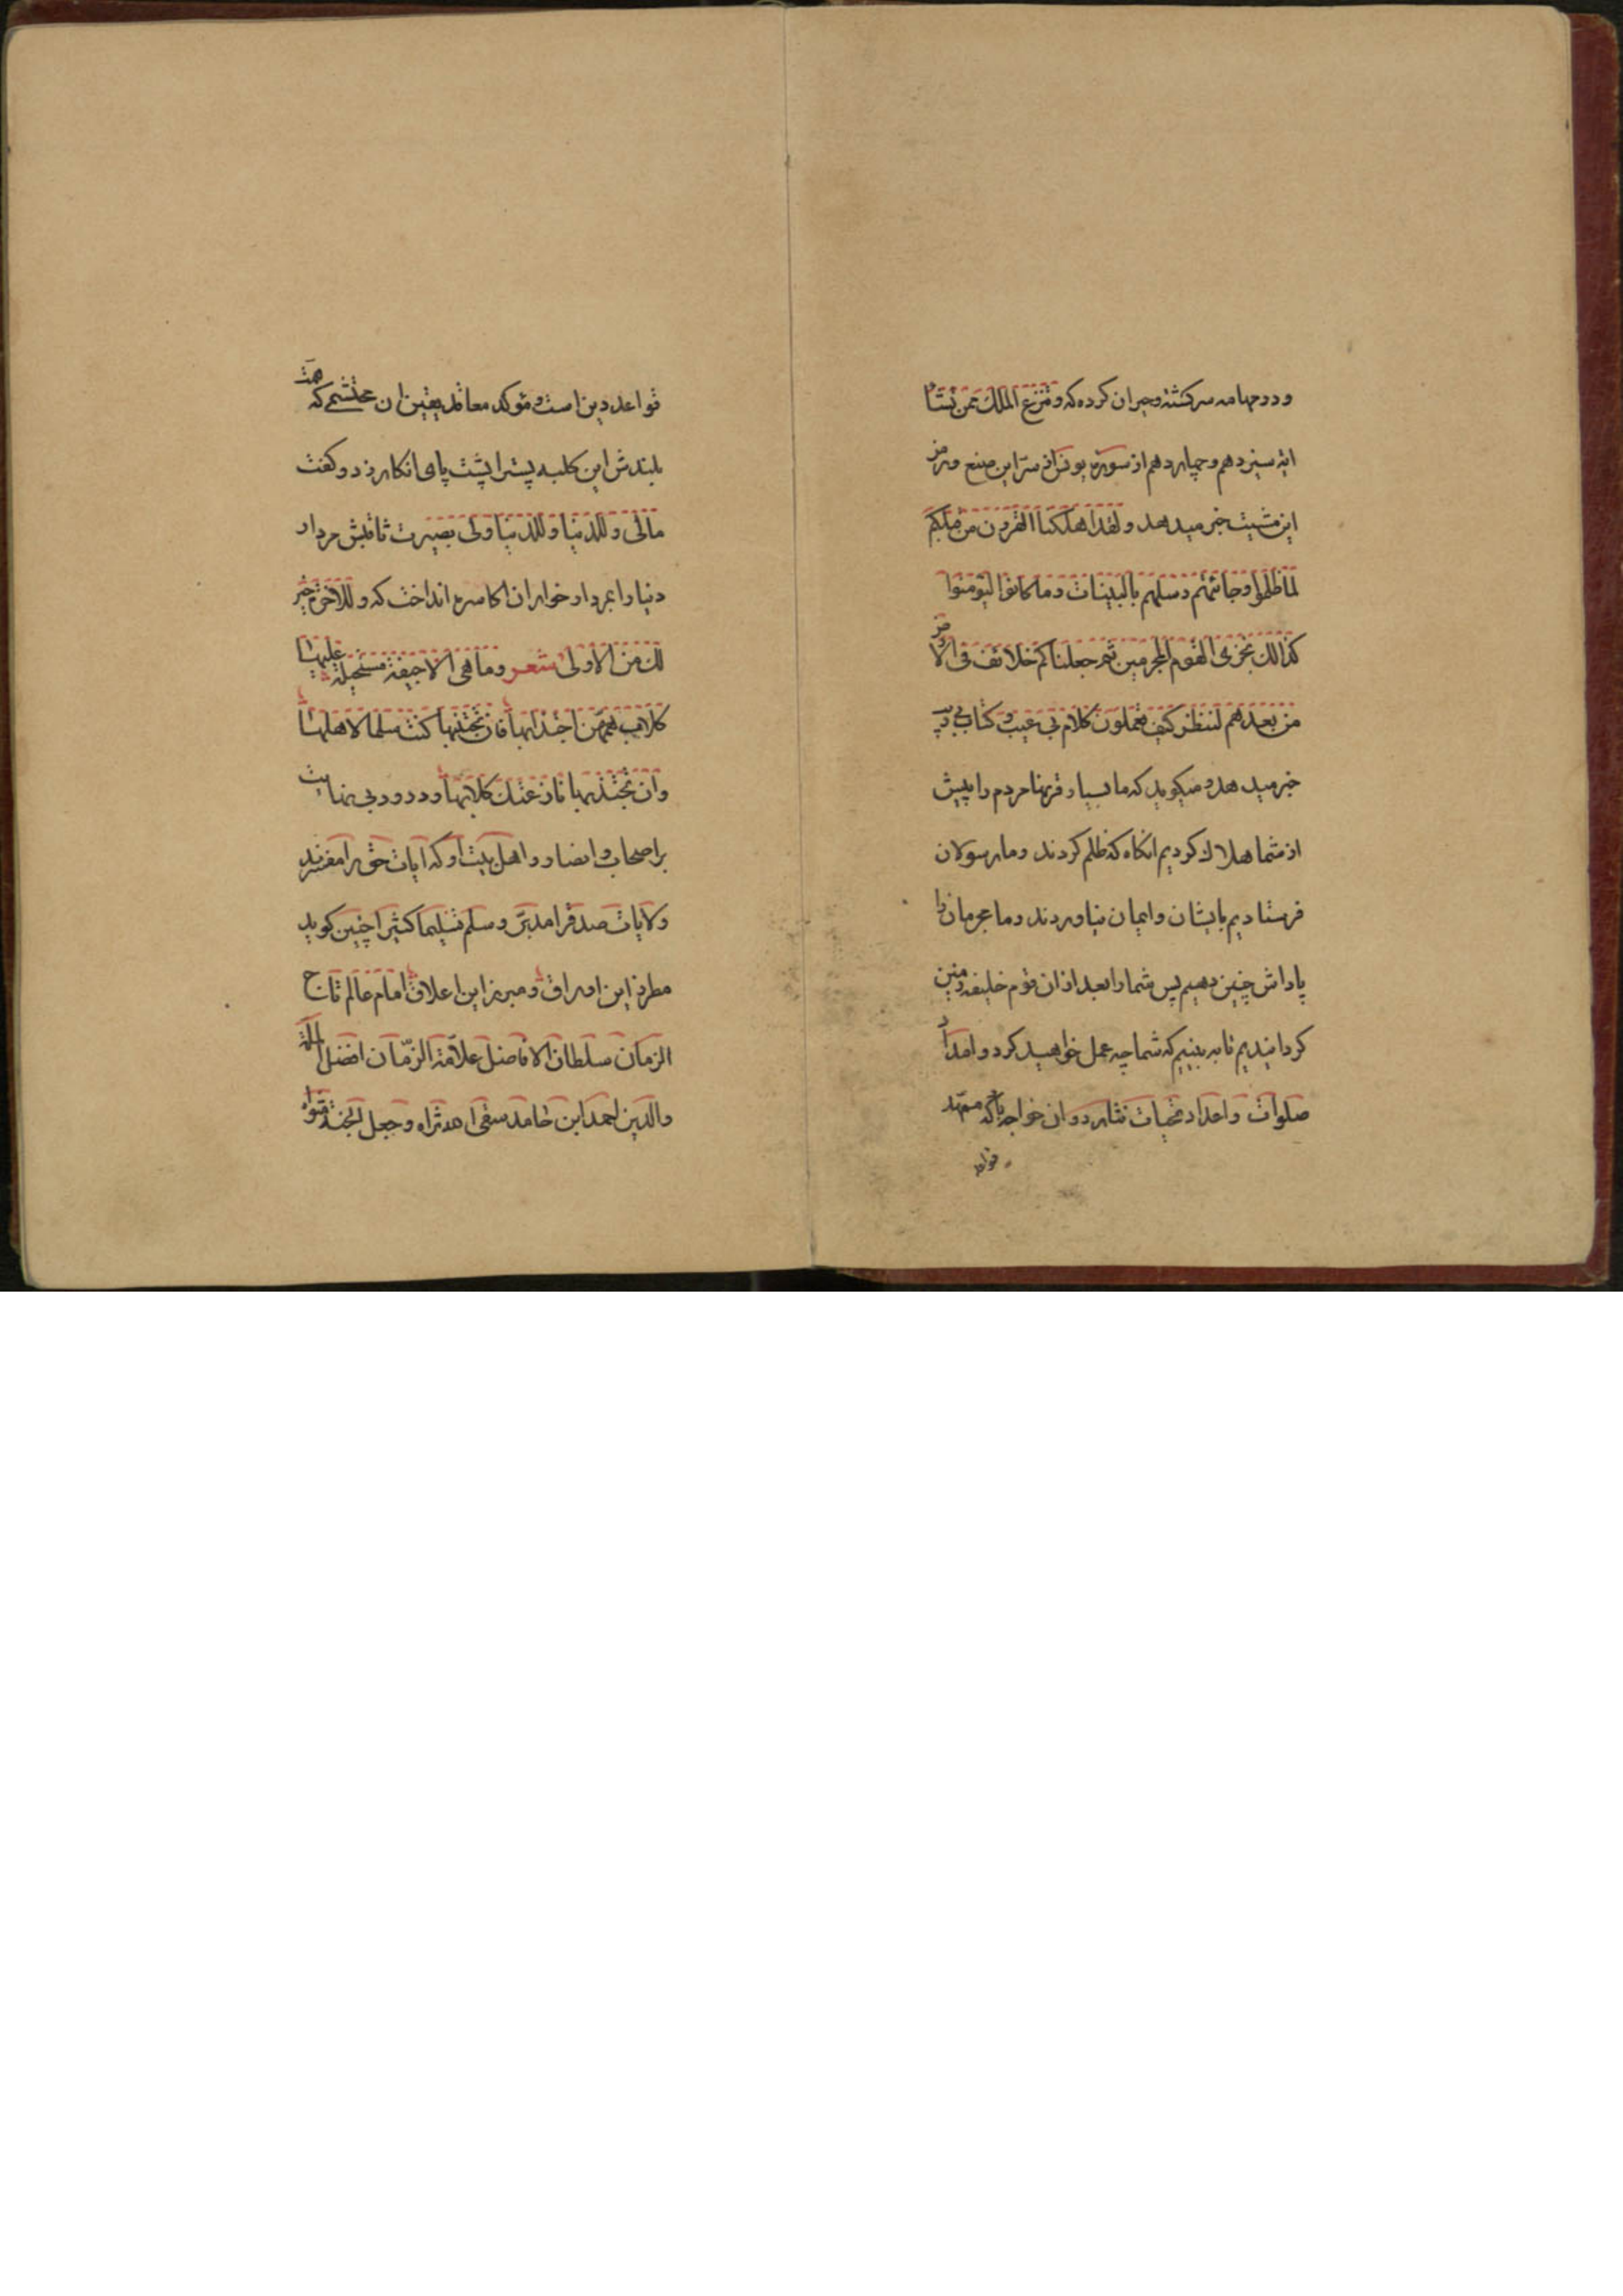 و در جهامه سرگشته و حیران کرده که و تنزع الملک ممن تشاء
آیه سیزدهم و چهاردهم از سوره یونس از سر این صنع و رمز
این مشیت خبر میدهد و لقد اهلکنا القرون من قبلکم
لما ظلموا و جائتهم رسلهم بالبینات و ما کانوا لیؤمنوا
کذالک نجزی القوم المجرمین ثم جعلناکم خلائف فی الارض
من بعدهم لننظر کیف تعملون کلام بی عیب و کتاب بی ریب
خبر میدهد و میکوید که ما بسیار قرنها مردم را پیش
از شما هلاک کردیم انکاه که ظلم کردند و ما رسولان
فرستادیم بایشان و ایمان نیاوردند و ما مجرمان را
پاداش چنین دهیم پس شما را بعد از ان قوم خلیفه زمین
کردانیدیم تا به بینیم که شما چه عمل خواهید کرد و امداد
صلوات و اعداد تحیات نثار در وان خواجه باد که ممهد
قواعد
قواعد دین است و مؤکد معاقد یقین ان محتشمی که همت
بلندش این کلبه پست را پشت پای انکار زد و کفت
مالی و للدنیا و للدنیا ولی بصیرت ثاقبش مردار
دنیا را بمردار خواران اکاسره انداخت که و للآخرة خیر
لک من الاولی شعر و ما هی الا جیفة مستحیلة علیها
کلاب همهن اجتذابها فان تجتنبها کنت سلما لاهلها
وان تجتذبها نازعتک کلابها و درود بی نهایت
بر اصحاب و انصار و اهل بیت او که ایات حق را مفسرند
و لایات صدق را مدبر و سلم تسلیما کثیرا چنین کوید
مطرز این اوراق و مبرز این اعلاق امام عالم تاج
الزمان سلطان الافاضل علامة الزمان افضل الملة
والدین احمد ابن حامد سقی الله ثراه و جعل الجنة مثواه